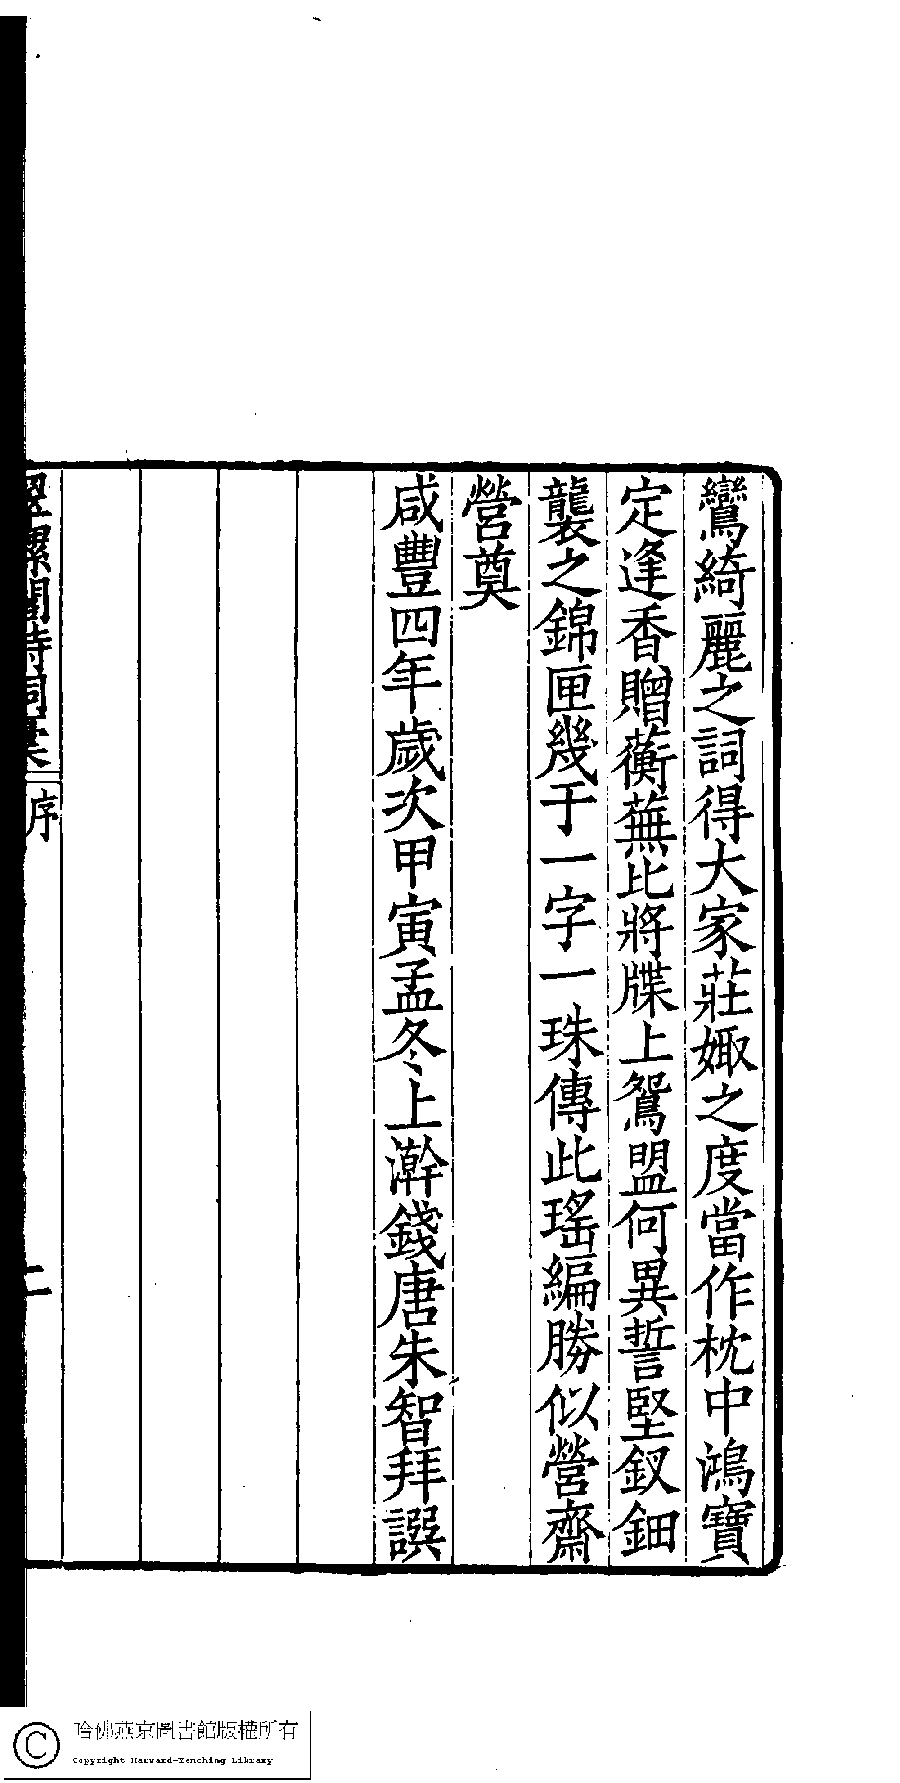 鸞綺麗之詞得大家莊娵之度當作枕中鴻寶
定逢香贈蘅蕪比將牒上鴛盟何異誓堅釵鈿
襲之錦匣幾于一字一珠傳此瑤編勝似營齋
營奠
咸豐四年歲次甲寅孟冬上澣錢唐朱智拜譔
翠螺閣詩詞稾
序
二
哈佛燕京圖書館版權所有
Copyright Harvard-Yenching Library